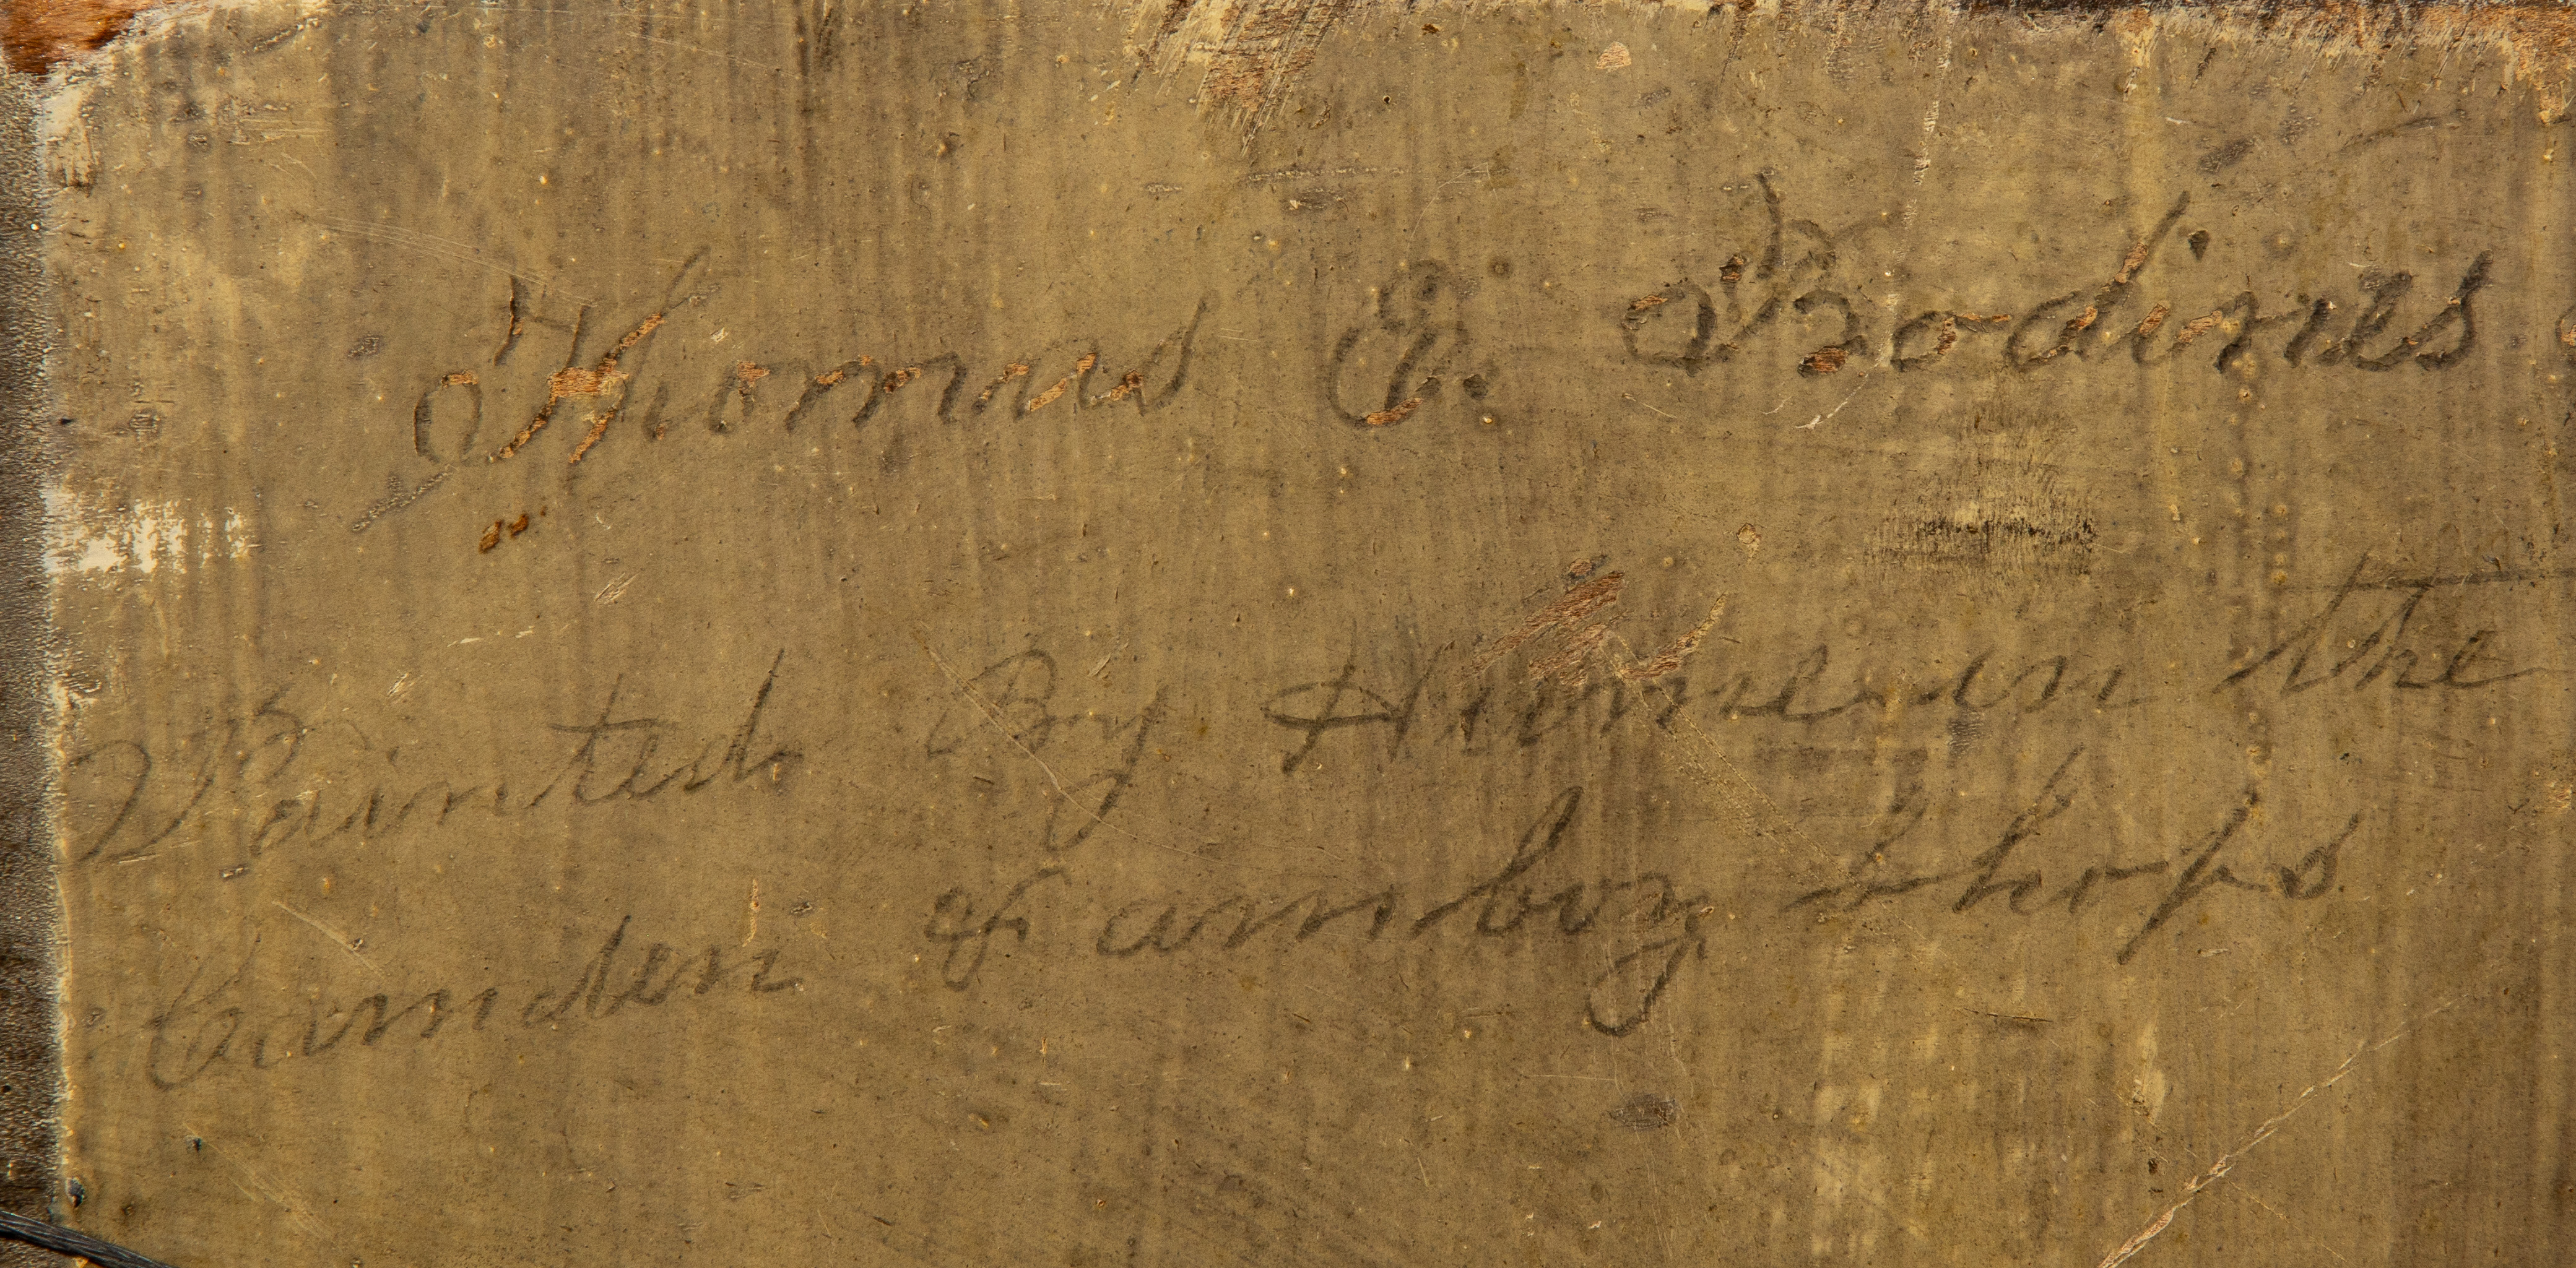 Thomas E. Bodines
Painted By in the
Camden & amboy Shops